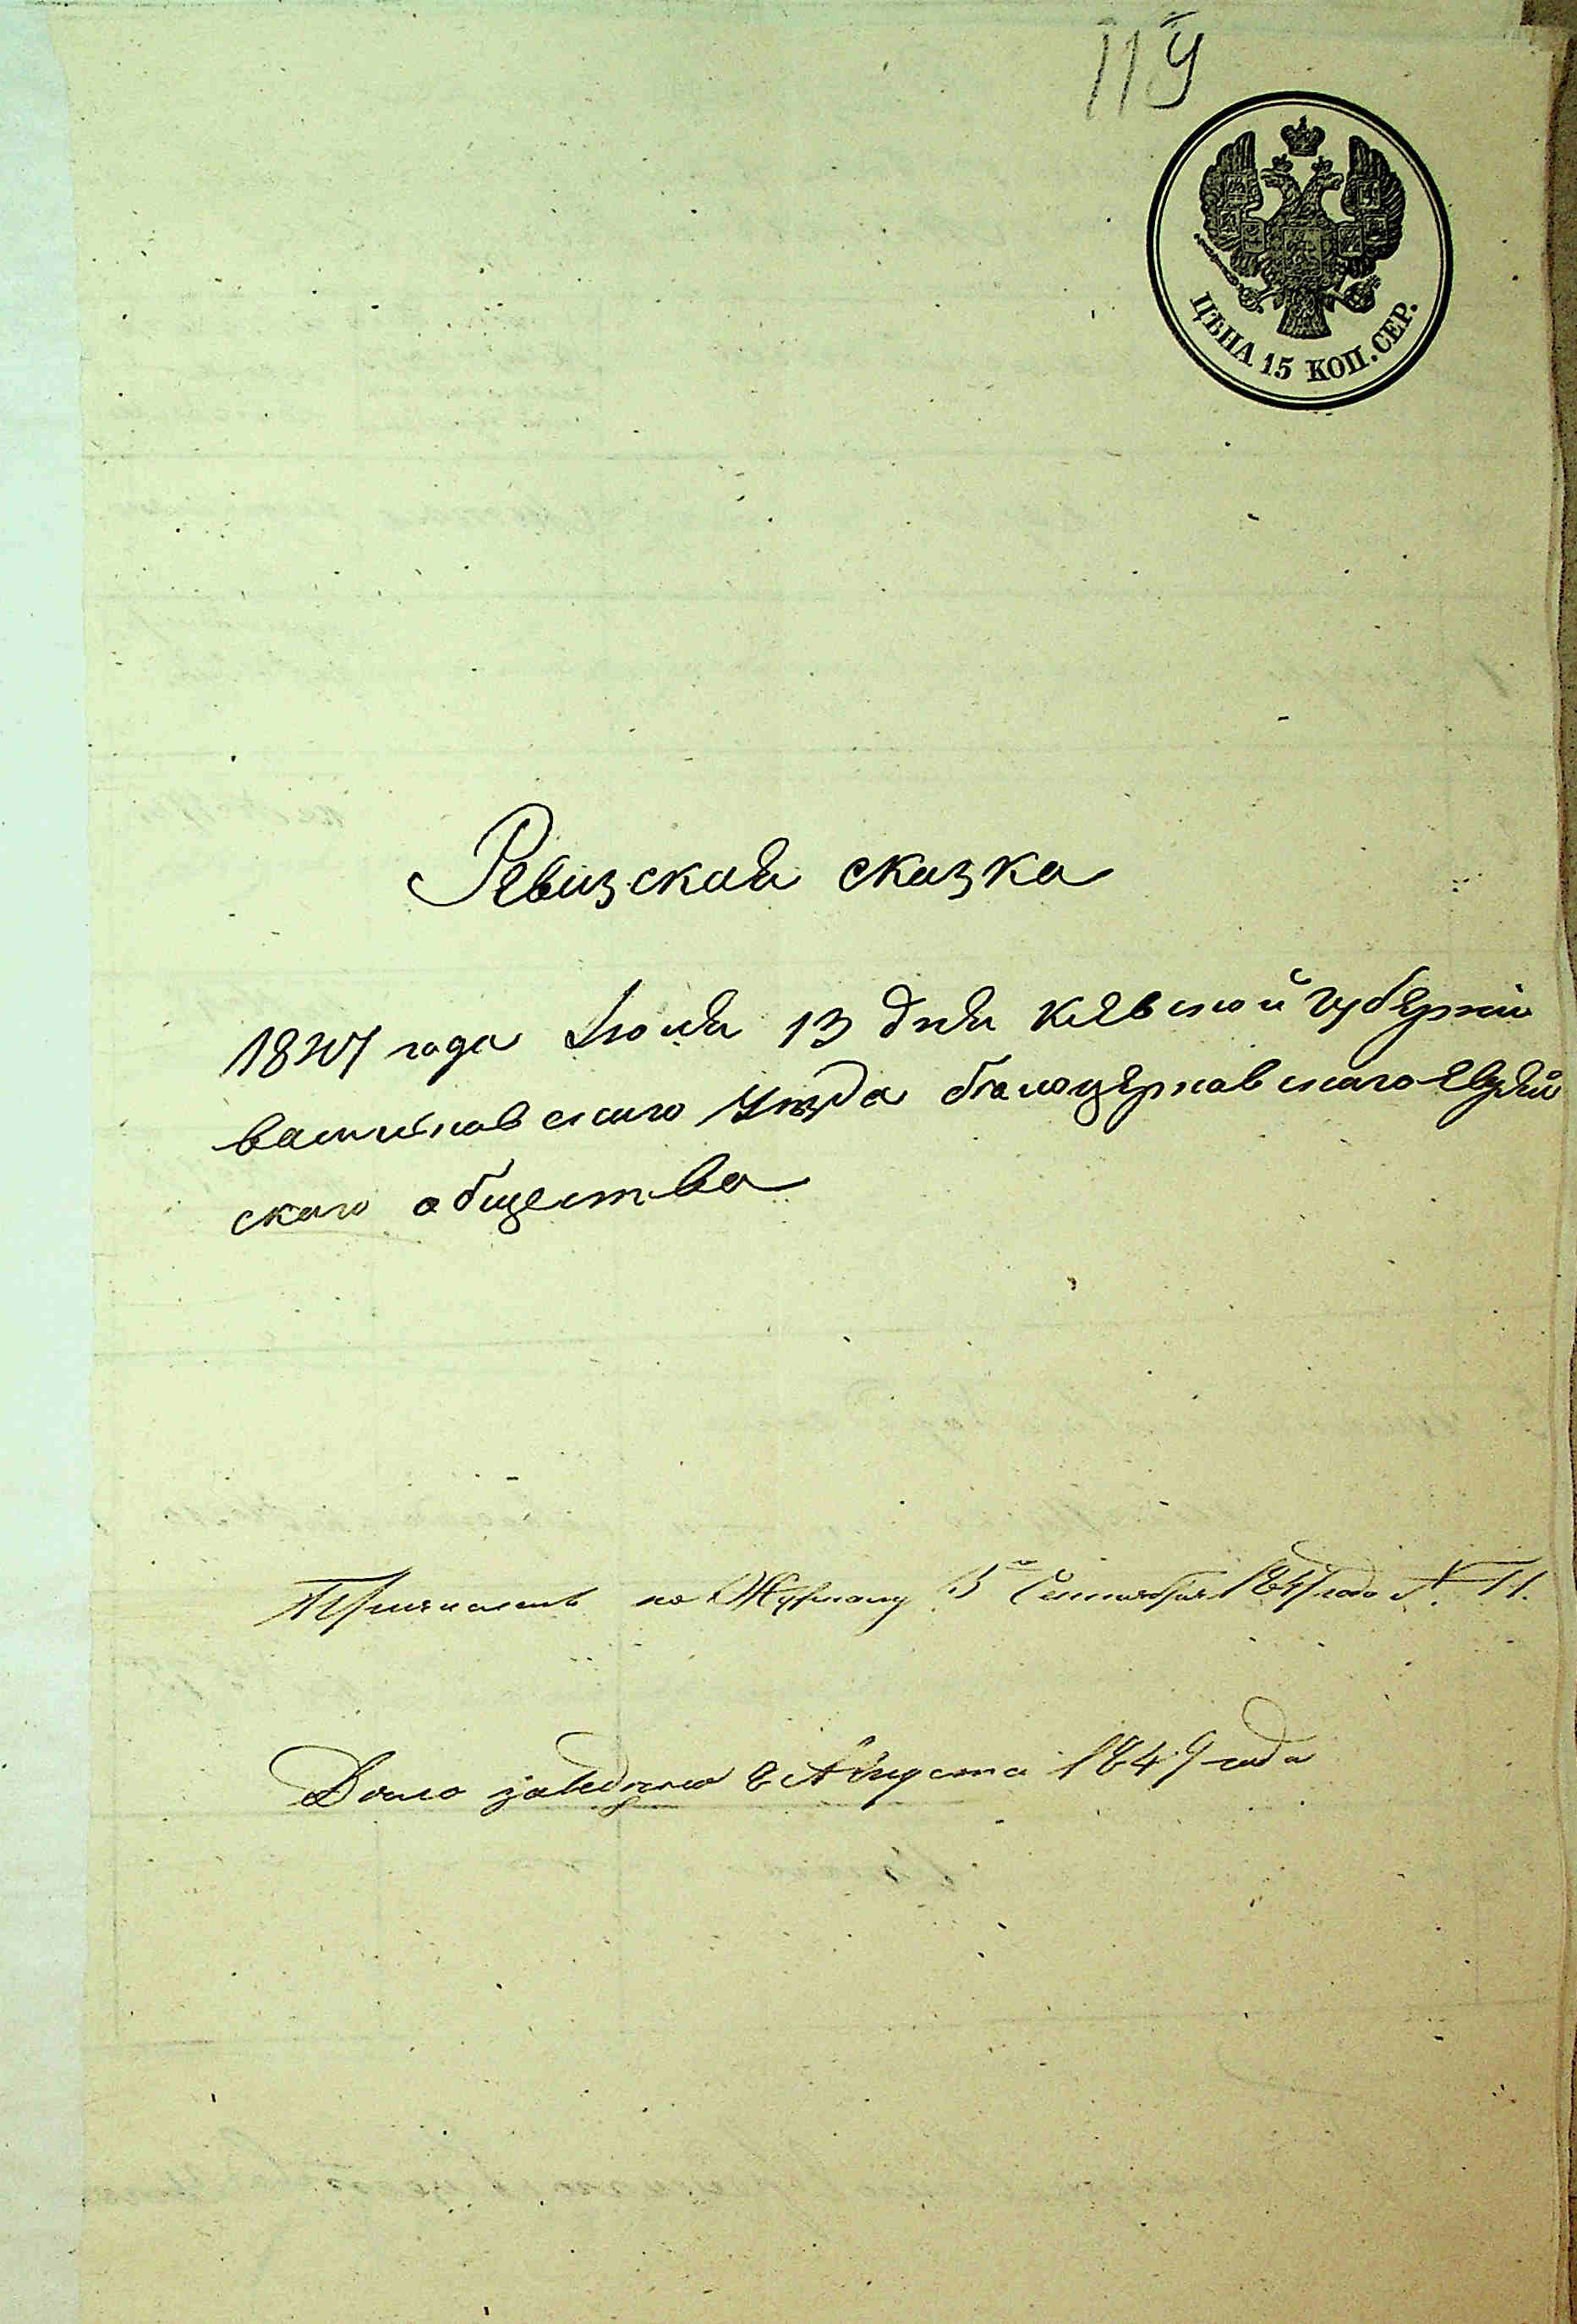 119
ЦѢНА 15 КОП. СЕР.
Ревизская сказка
1847 года Июля 13 дня Киевской губернии
васильковского уезда белоцерковского еврей
ского общества
по Журналу 5 Сентября 1847 года №. 11.
Дело заведено 8 Августа 1847 года